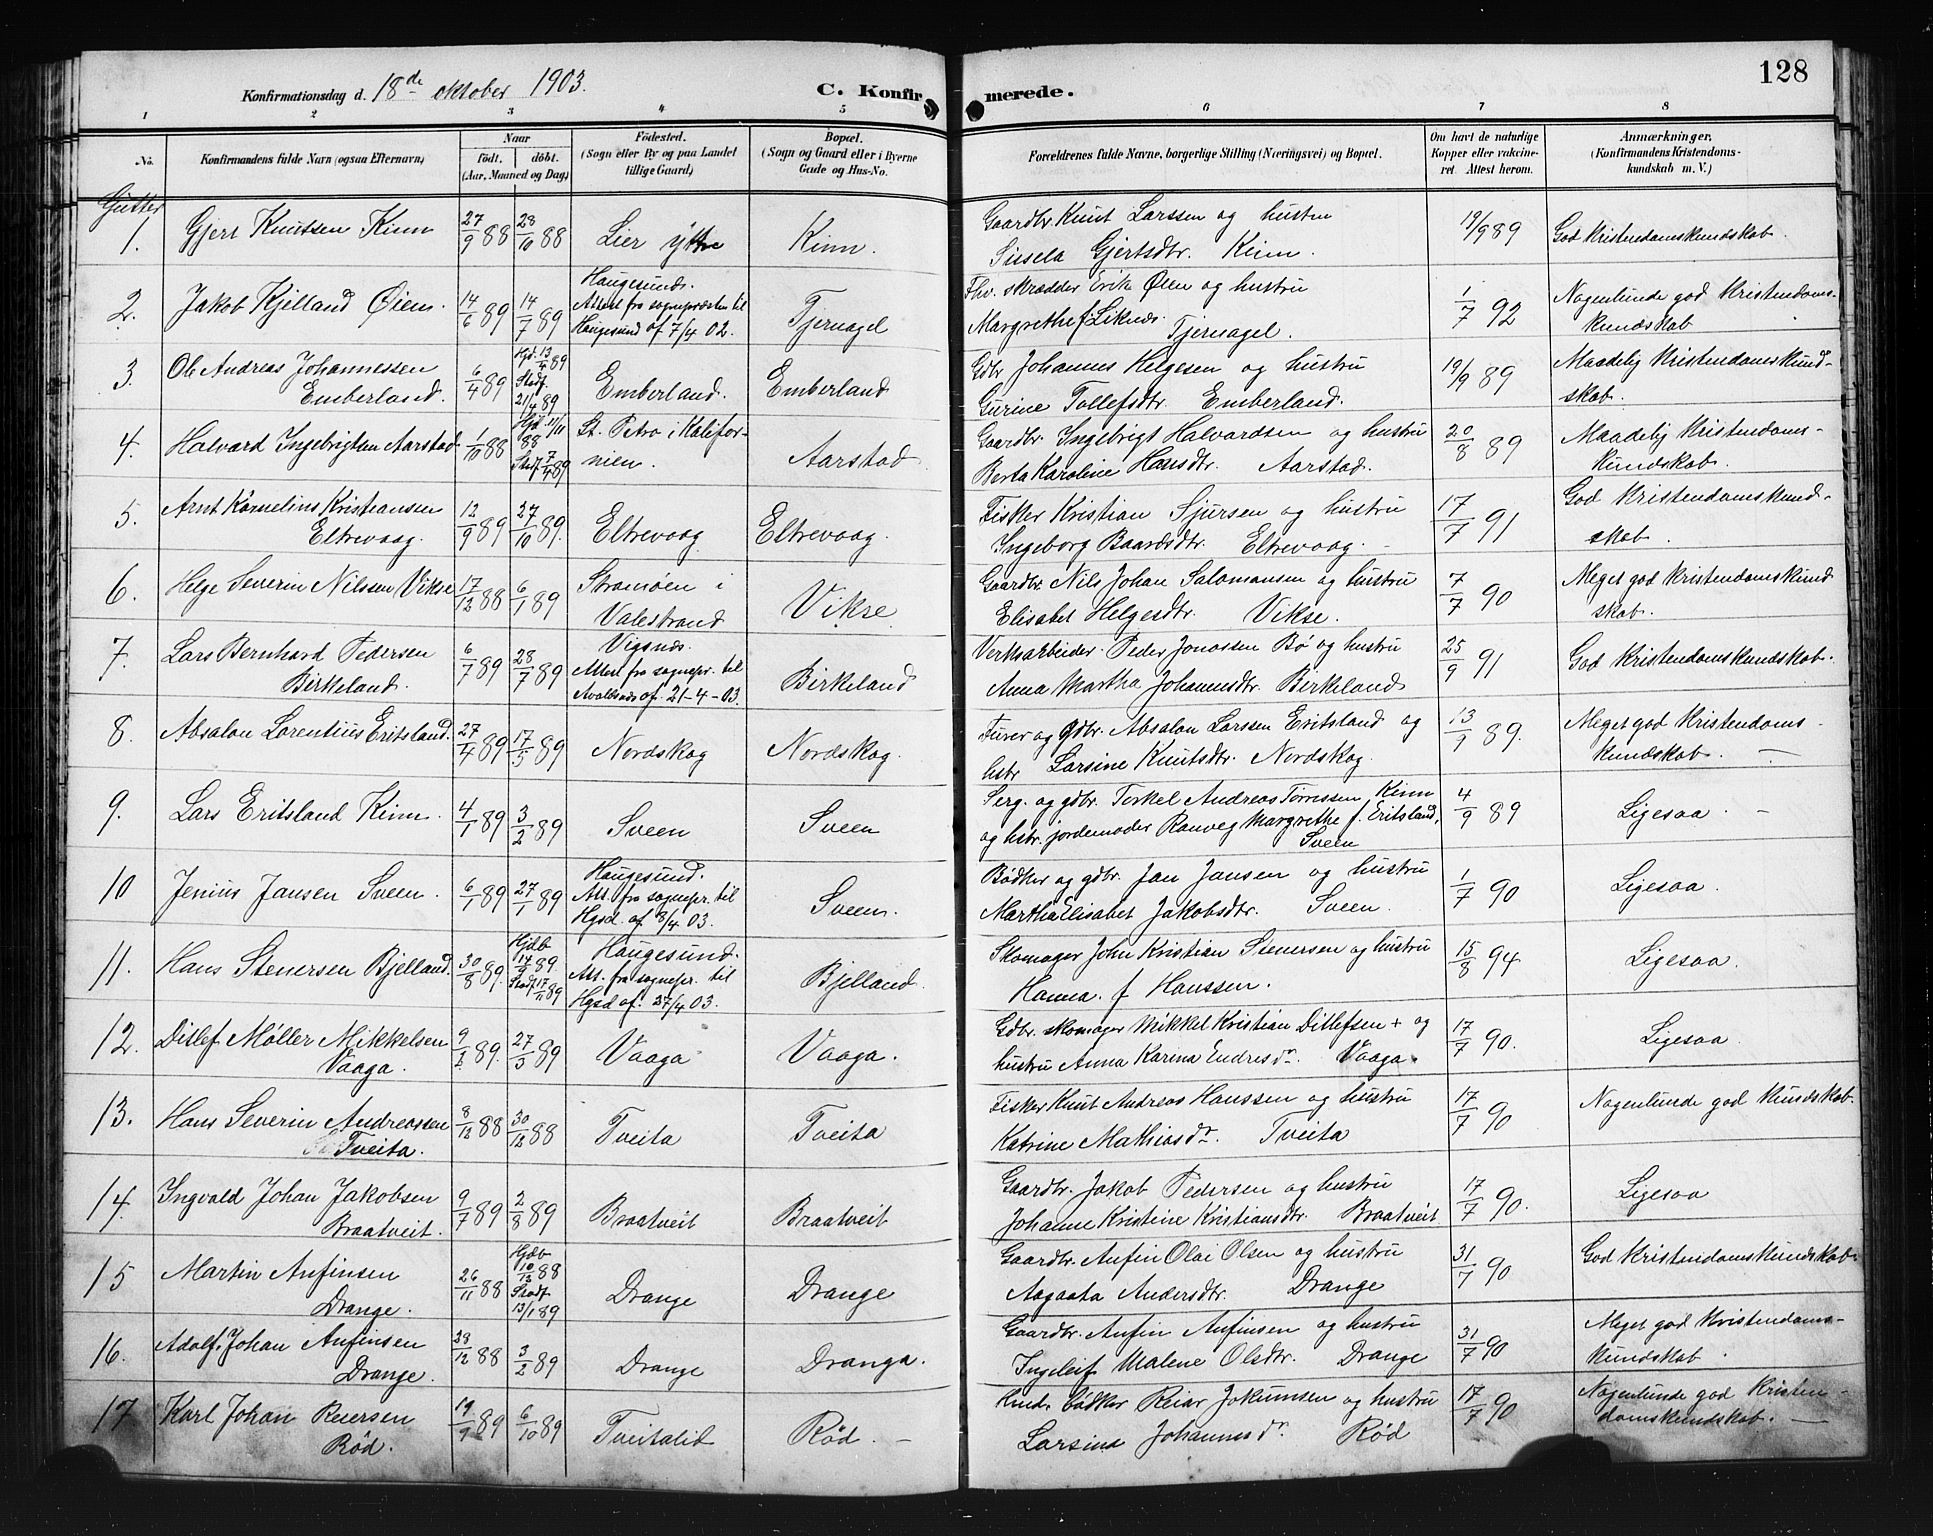 128
Konfirmationsdag d. 18de oktober 1903.
C. Konfirmerede.
1 2 3 4 5 6 7 8
No.
Konfirmandens fulde Navn (ogsaa Efternavn)
Naar
født. døbt.
(Aar, Maaned og Dag)
Fødested.
(Sogn eller By og paa Landet
tillige Gaard)
Bopæl.
(Sogn og Gaard eller i Byerne
Gade og Hus-No.
Forældrenes fulde Navne, borgerlige Stilling (Næringsvei) og Bopæl.
Om havt de naturlige
Kopper eller vakcineret. Attest herom.
Anmærkninger.
(Konfirmandens Kristendoms-
kundskab m. V.)
Gutter
1. Gjert Knutsen Kinn 27/9 88 28/10 88 Lier ytre Kinn. Gaardbr. Knut Larssen og hustru 19/9 89 God Kristendomskundskab.
Sissela Gjertsdtr. Kinn.
2. Jakob Kjelland Øien. 14/6 89 14/7 89 Haugesund. Tjernagel Fhv. skrædder Erik Øien og hustru 1/7 92 Nogenlunde god Kristendoms-
Attest fra sognepræsten til Margrethe f. Liknes. Tjernagel. kundskab
Haugesund af 7/4 02.
3. Ole Andreas Johannessen 6/4 89 Hjd. 13/4 89 Emberland. Emberland Gdbr Johannes Helgesen og hustru 19/9 89 Maadelig Kristendomskund-
Emberland. Stadf. 21/4 89 Gurine Tollefsdtr. Emberland. skab.
4. Halvard Ingebrigtsen Aarstad 1/10 88 Hjd 11/11 88 St. Petro i Kalifor- Aarstad Gaardbr. Ingebrigt Halvardsen og hustru 20/8 89 Maadelig Kristendoms-
Stadf 7/4 89 nien. Berta Karoline Hansdtr. Aarstad. kundskab.
5. Arnt Kornelius Kristiansen 12/9 89 27/10 89. Eltrevaag Eltrevaag. Fisker Kristian Sjursen og hustru 17/7 91 God Kristendomskund-
Eltrevaag. Ingeborg Baardsdtr. Eltrevaag. skab.
6. Helge Severin Nilssen Vikse 17/12 88 6/1 89 Stramøen i Vikse Gaardbr. Nils Johan Salomonsen og hustru 7/7 90 Meget god Kristendomskund
Valestrand Elisabet Helgesdtr. Vikse. skab.
7. Lars Bernhard Pedersen 6/7 89 28/7 89 Vigsnes. Birkeland Verksarbeider Peder Jonassen Bø og hustru 25/9 91 God Kristendomskundskab.
Birkeland. Attest fra sognepr. til Anna Martha Johannesdtr. Birkeland
Avaldsnes af 21-4-03.
8. Absalon Lorentius Eritsland. 27/4 89 17/5 89 Nordskog Nordskog. Furer og gdbr. Absalon Larssen Eritsland og 13/9 89. Meget god Kristendoms-
hstr Larsine Knutsdtr. Nordskog. kundskab. —
9. Lars Eritsland Kinn. 4/1 89 3/2 89 Sveen Sveen Serg. og gdbr. Torkel Andreas Tørressen Kinn 4/9 89 Ligesaa. —
og hstr. jordemoder Ranveg Margrethe f. Eritsland,
Sveen
10 Jenius Jansen Sveen. 6/1 89 27/1 89 Haugesund. Sveen. Bødker og gdbr. Jan Jansen og hustru 1/7 90 Ligesaa.
Att. fra sognepr. til Martha Elisabet Jakobsdtr. Sveen.
Hgsd af 8/4 03.
11. Hans Stenersen Bjelland. 30/8 89. Hjdb 14/9 89 Haugesund. Bjelland. Skomager John Kristian Stenersen og hustru 15/8 94 Ligesaa.
Stadf 17/11 89 Att. fra sognepr. til Hanna f Hanssen.
Hgsd af 27/4 03.
12. Ditlef Møller Mikkelsen 9/2 89. 27/3 89 Vaaga Vaaga. Gdbr. skomager Mikkel Kristian Ditlefsen + og 17/7 90. Ligesaa.
Vaaga. hustru Anna Karina Endresdr. Vaaga.
13. Hans Severin Andreassen 8/12 88 30/12 88 Tveita Tveita Fisker Knut Andreas Hanssen og hustru 17/7 90 Nogenlunde god Kundskab.
Tveita. Katrine Mathiasdr. Tveita
14. Ingvald Johan Jakobsen 9/7 89 2/8 89 Braatveit Braatveit Gaardbr. Jakob Pedersen og hustru 17/7 90. Ligesaa
Braatveit. Johanne Kristine Kristiansdtr. Braatveit
15 Martin Anfinsen 26/11 88 Hjdb 10/12 88 Drange Drange Gaardbr. Anfin Olai Olsen og hustru 31/7 90 God Kristendomskundskab.
Drange. Stadf 13/1 89 Aagaata Andersdtr. Drange
16. Adolf Johan Anfinsen 28/12 88 3/2 89 Drange Dranga. Gaardbr. Anfin Anfinsen og hustru 31/7 90 Meget god Kristendoms-
Drange. Ingeleif Malene Olsdtr. Drange kundskab.
17 Karl Johan Reiersen 19/9 89 6/10 89 Tveitalid Rød. — Hmd. bødker Reiar Jokumsen og hustru 17/7 90 Nogenlunde god Kristen-
Rød. Larsina Johannesdr. Rød domskundskab. —